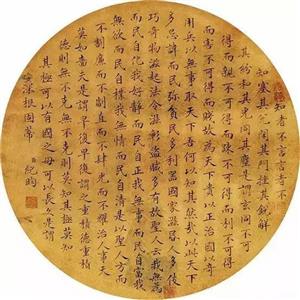 知者不言言者不
知塞其兌閉其門挫其銳解
其紛和其光同其塵是謂玄同不可
得而親不可得而疎不可得而利不可得
而害不可得而賤故為天下貴以正治國以奇
用兵以無事取天下吾何以知其然哉以此天下
多忌諱而民彌貧民多利器國家滋昏人多伎
巧奇物滋起法令滋彰盜賊多有故聖人云我無為
而民自化我好靜而民自正我無事而民自富我
無欲而民自樸我無情而民自清是以聖人方而
不割廉而不劌直而不肆光而不耀治人事天
莫如嗇夫是謂早復早復謂之重積德重積
德則無不克無不克則莫知其極莫知
其極可以有國之母可以長久是謂
深根固蒂 紀昀